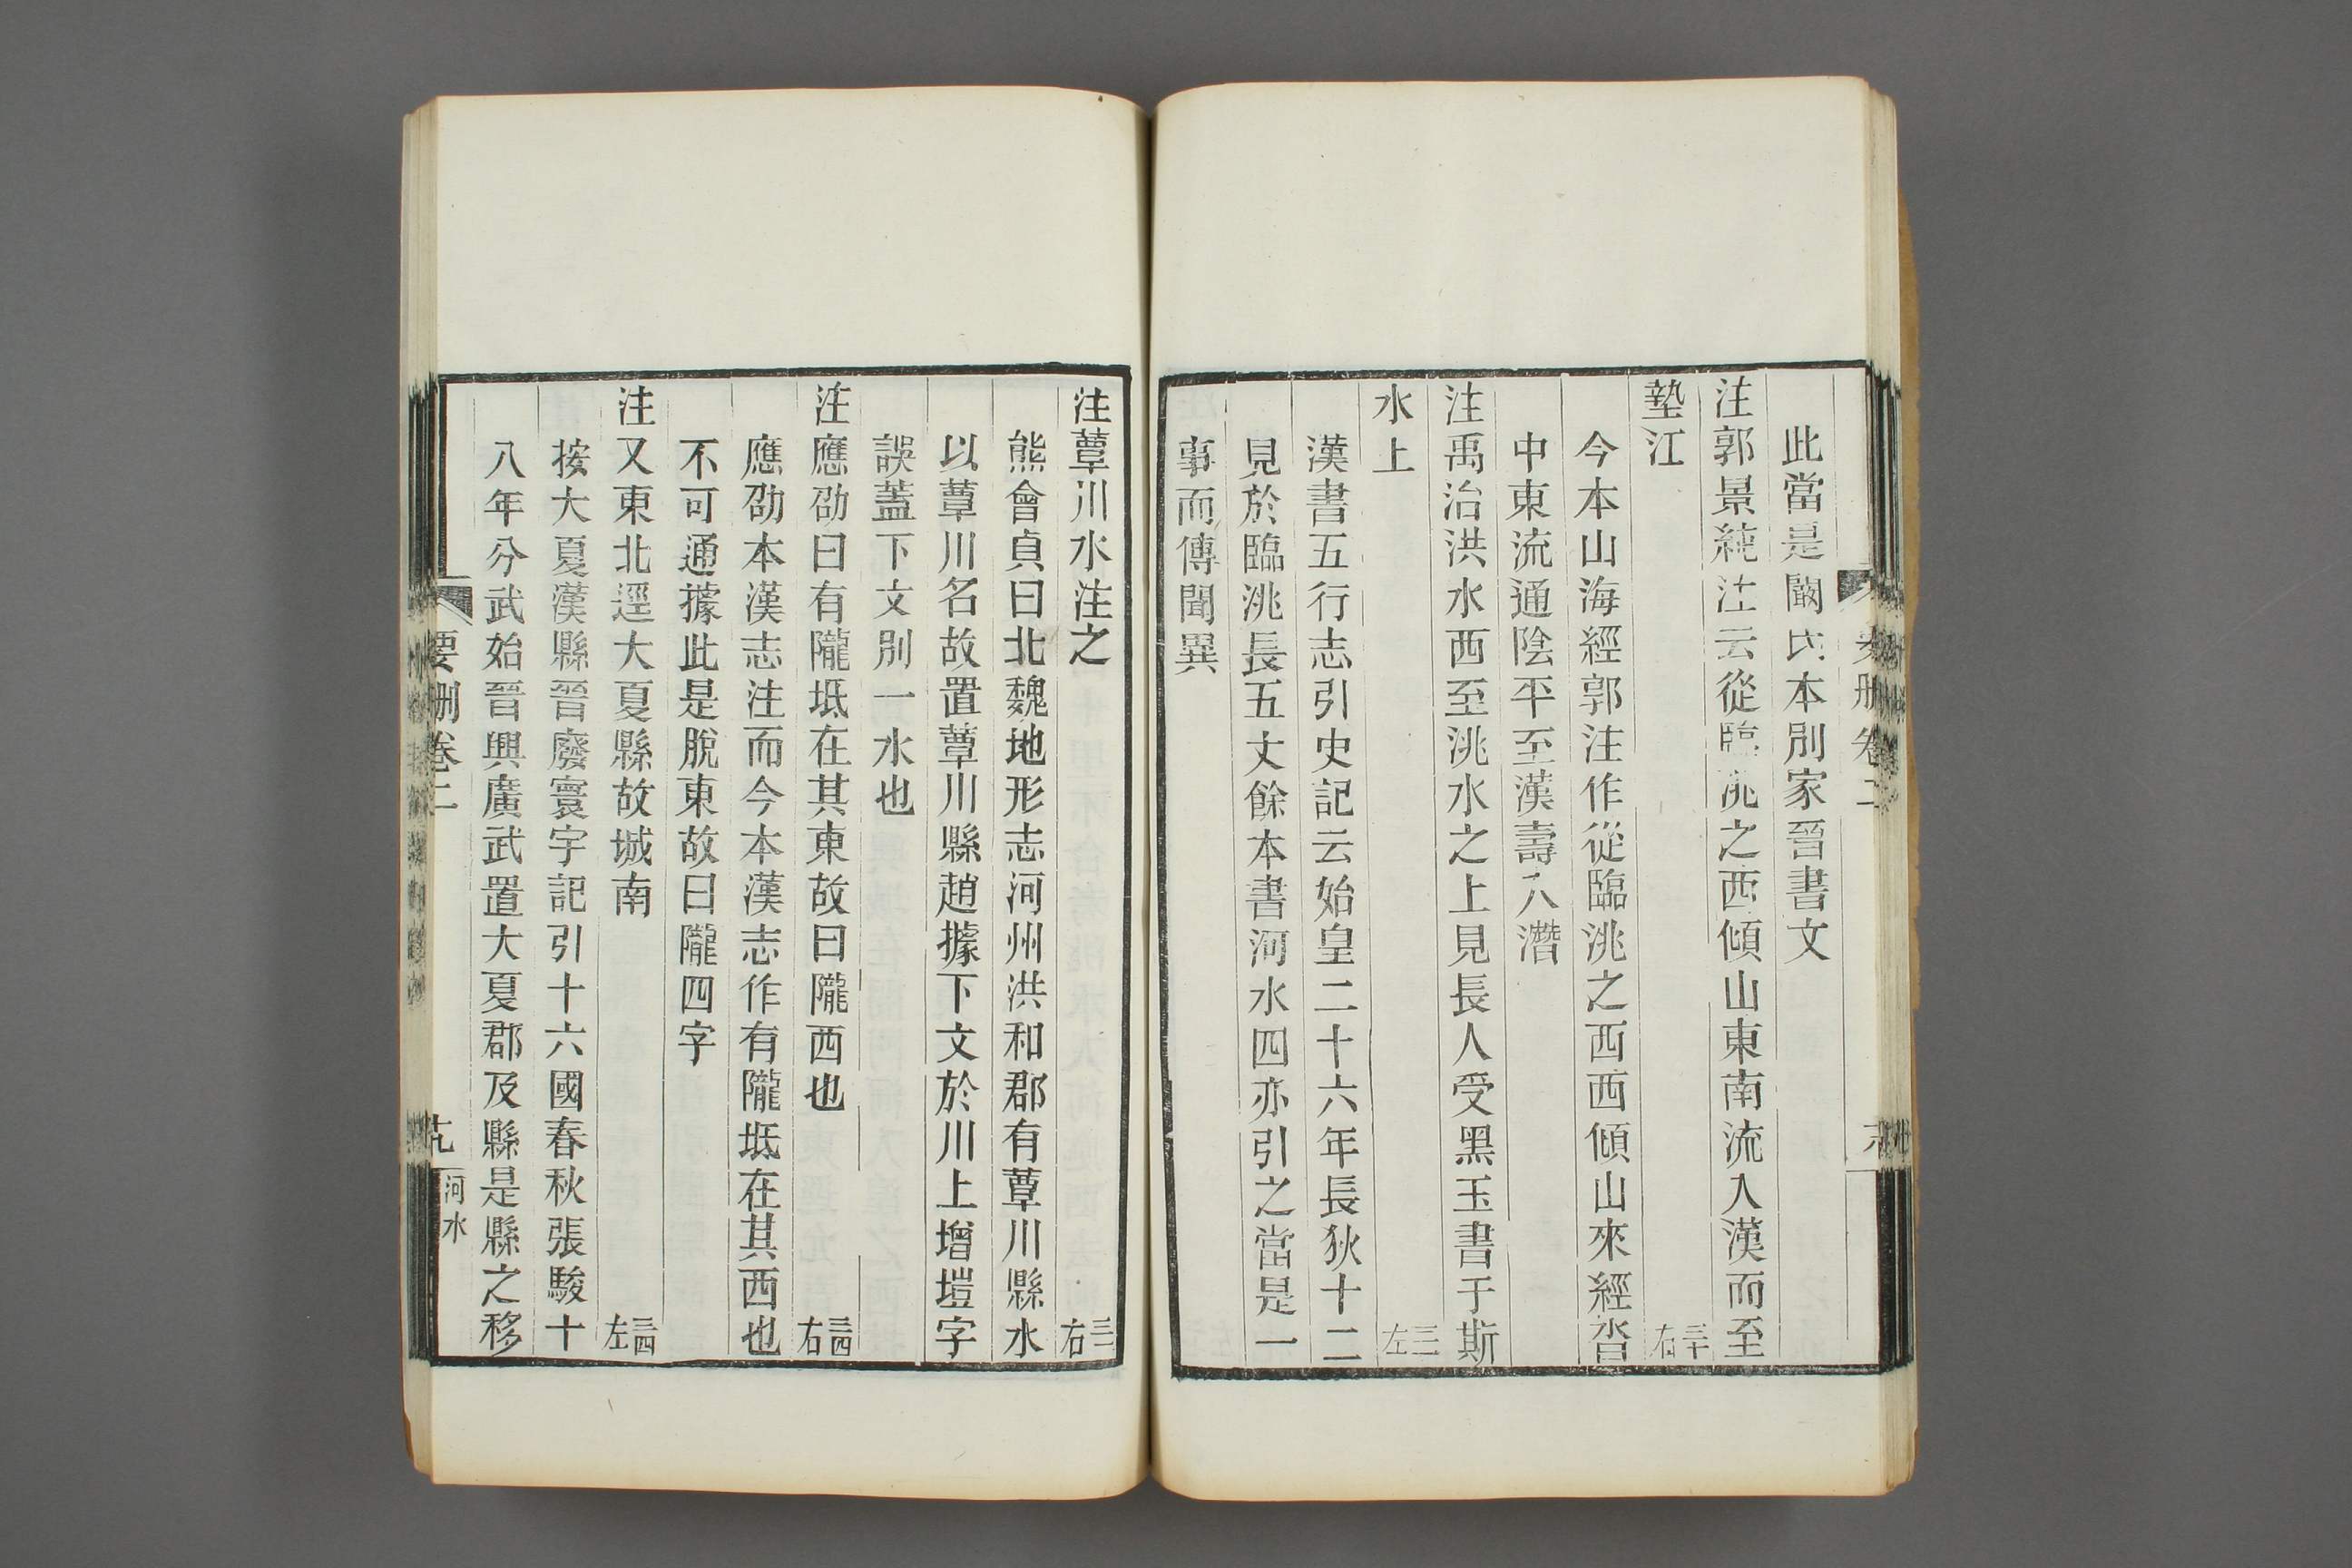 此當是闞氏本別家晉書文
注郭景純注云從臨洮之西傾山東南流入漢而至
墊江 三十右
今本山海經郭注作從臨洮之西西傾山來經沓
中東流通陰平至漢壽入潛
注禹治洪水西至洮水之上見長人受黑玉書于斯
水上 三二左
漢書五行志引史記云始皇二十六年長狄十二
見於臨洮長五丈餘本書河水四亦引之當是一
事而傳聞異
注蕈川水注之 三二右
熊會貞曰北魏地形志河州洪和郡有蕈川縣水
以蕈川名故置蕈川縣趙據下文於川上增塏字
誤蓋下文別一水也
注應劭曰有隴坻在其東故曰隴西也 三四右
應劭本漢志注而今本漢志作有隴坻在其西也
不可通據此是脫東故曰隴四字
注又東北逕大夏縣故城南 三四左
按大夏漢縣晉廢寰宇記引十六國春秋張駿十
八年分武始晉興廣武置大夏郡及縣是縣之移
要刪卷二
河水